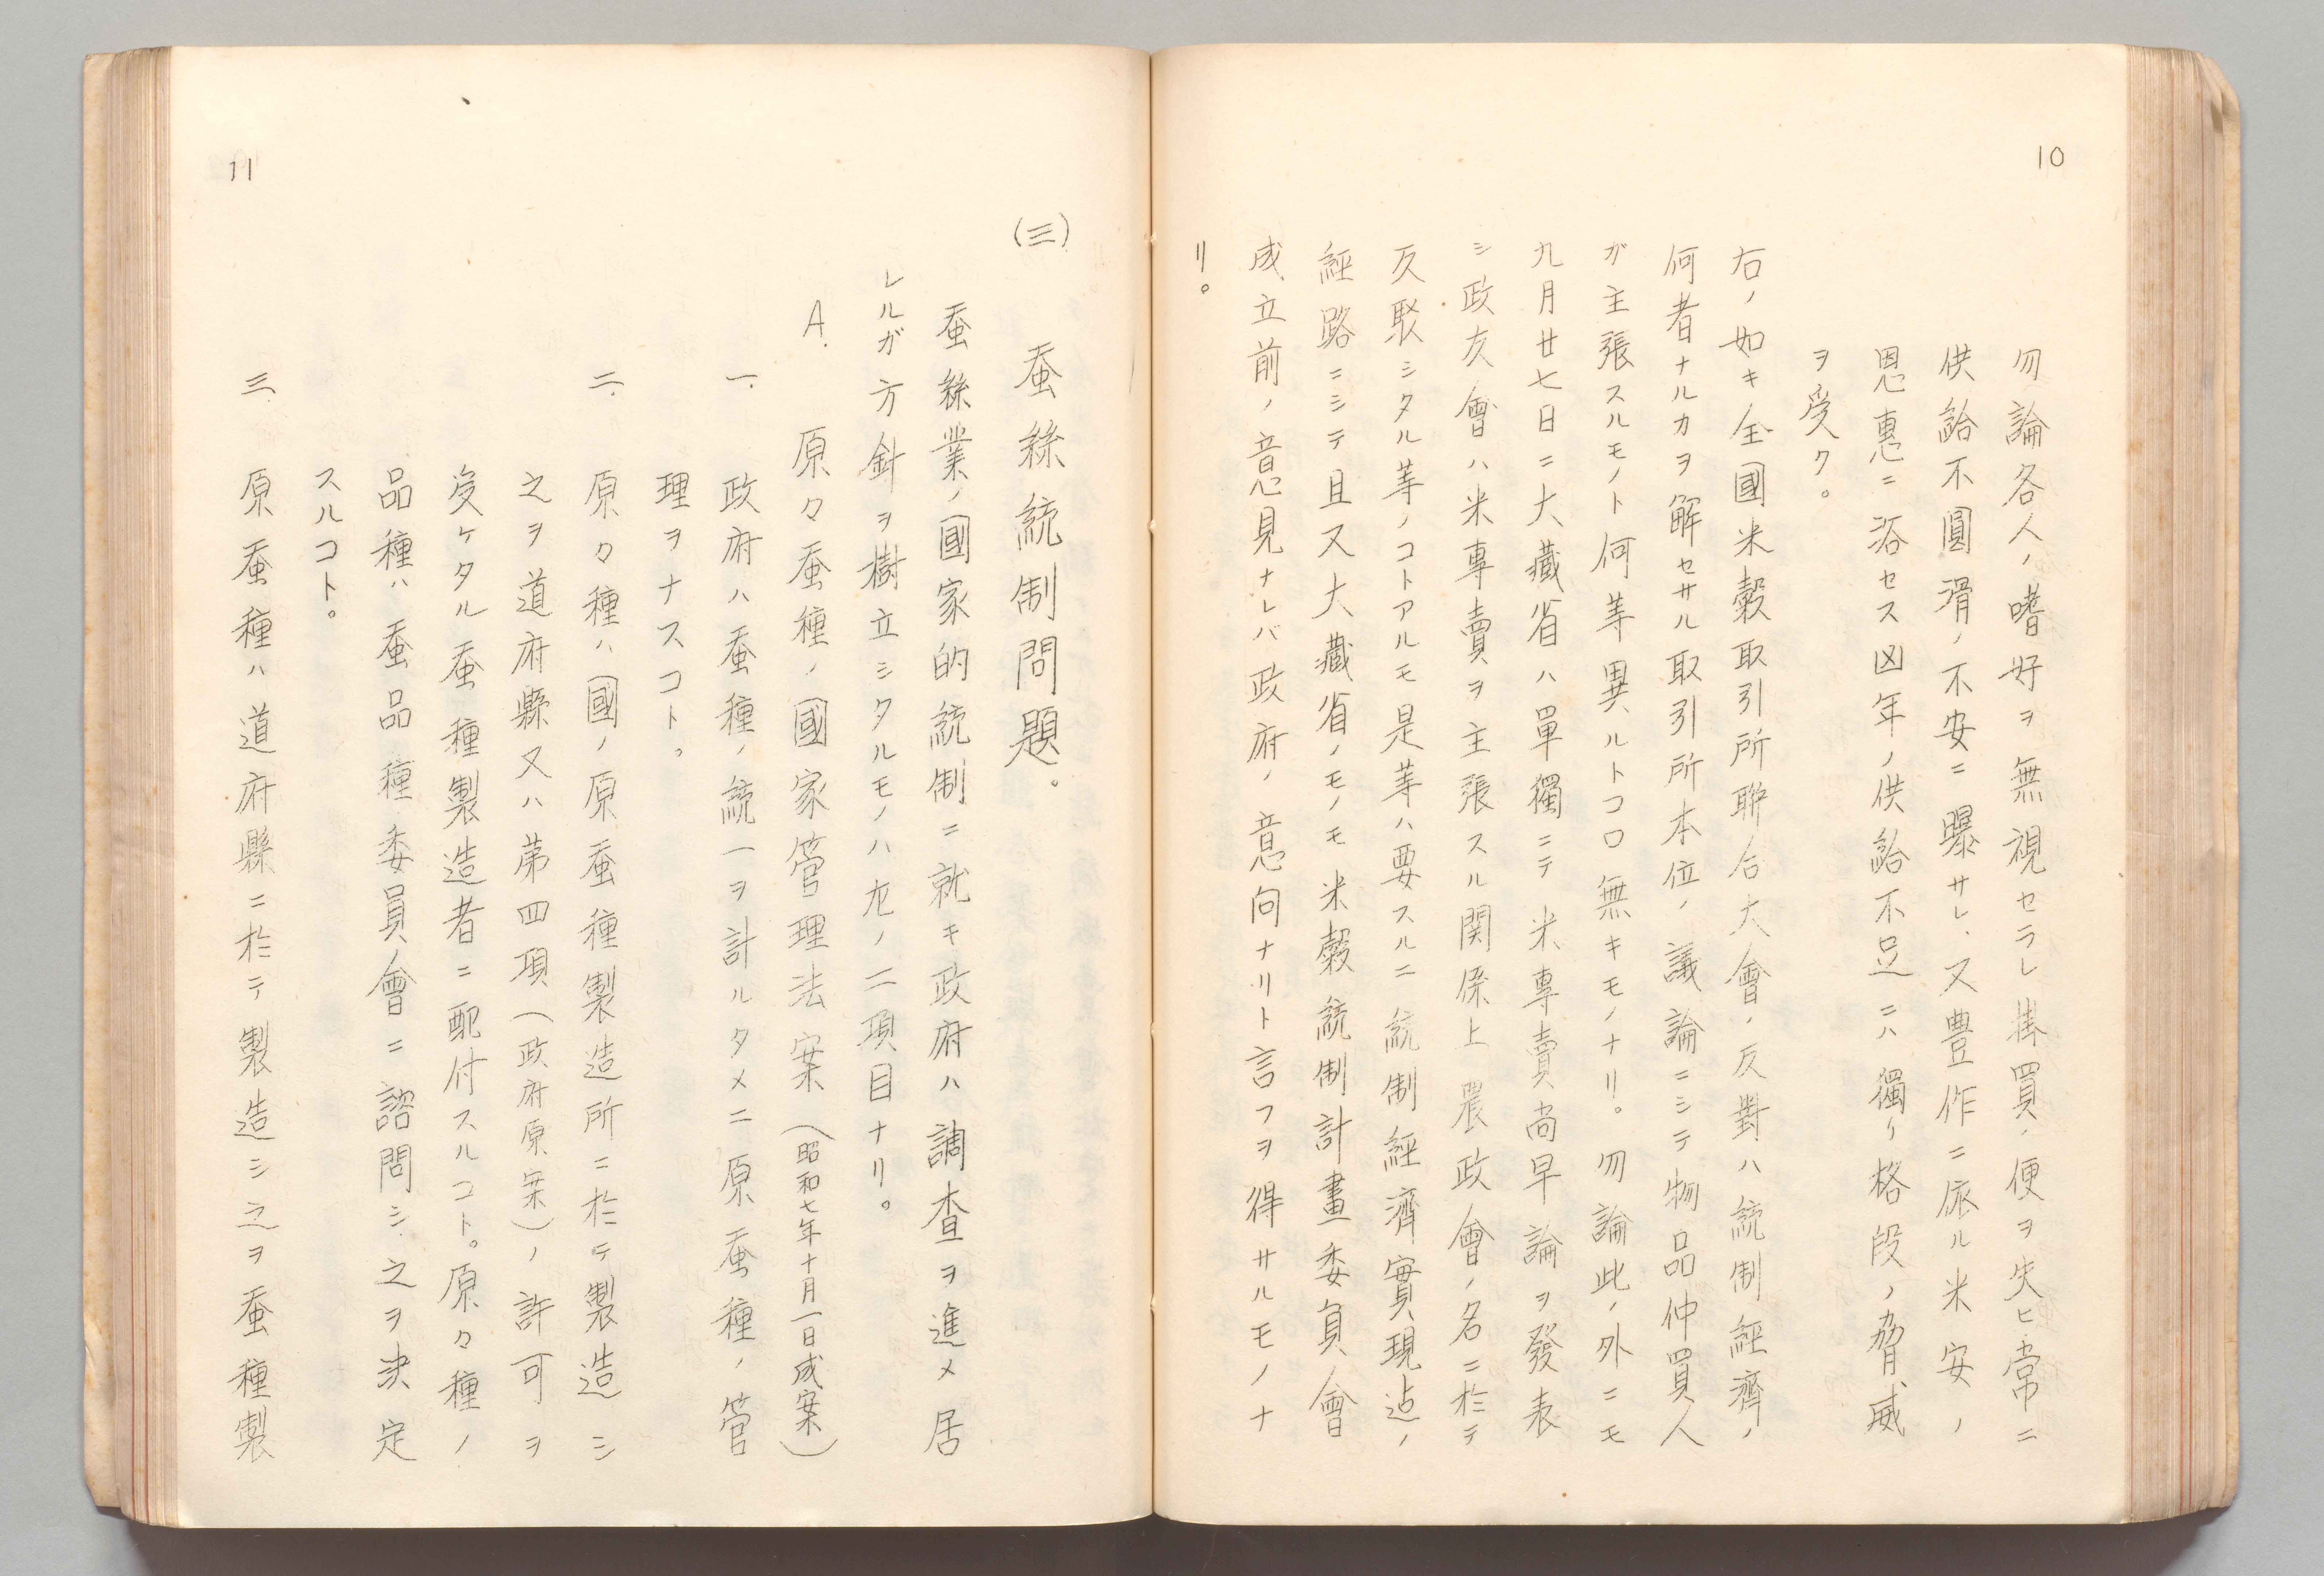 10
勿論各人ノ嗜好ヲ無視セラレ掛買ノ便ヲ失ヒ常ニ
供給不圓滑ノ不安ニ曝サレ、又豊作ニ依ル米安ノ
恩惠ニ浴セス凶年ノ供給不足ニハ獨リ格段ノ脅威
ヲ受ク。
右ノ如キ全國米穀取引所聯合大會ノ反對ハ統制經濟ノ
何者ナルカヲ解セサル取引所本位ノ議論ニシテ物品仲買人
ガ主張スルモノト何等異ルトコロ無キモノナリ。勿論此ノ外ニモ
九月廿七日ニ大藏省ハ單獨ニテ米專賣尚早論ヲ發表
シ政友會ハ米專賣ヲ主張スル関係上農政會ノ名ニ於テ
反駁シタル等ノコトアルモ是等ハ要スルニ統制經濟實現迠ノ
経路ニシテ且又大藏省ノモノモ米穀統制計畫委員會
成立前ノ意見ナレバ政府ノ意向ナリト言フヲ得サルモノナ
リ。
11
(三)
蚕絲統制問題。
蚕絲業ノ國家的統制ニ就キ政府ハ調査ヲ進メ居
レルガ方針ヲ樹立シタルモノハ左ノ二項目ナリ。
A. 原々蚕種ノ國家管理法案(昭和七年十月一日成案)
一. 政府ハ蚕種ノ統一ヲ計ルタメニ原蚕種ノ管
理ヲナスコト。
二. 原々種ハ國ノ原蚕種製造所ニ於テ製造シ
之ヲ道府縣又ハ第四項(政府原案)ノ許可ヲ
受ケタル蚕種製造者ニ配付スルコト。原々種ノ
品種ハ蚕品種委員會ニ諮問シ之ヲ決定
スルコト。
三. 原蚕種ハ道府縣ニ於テ製造シ之ヲ蚕種製